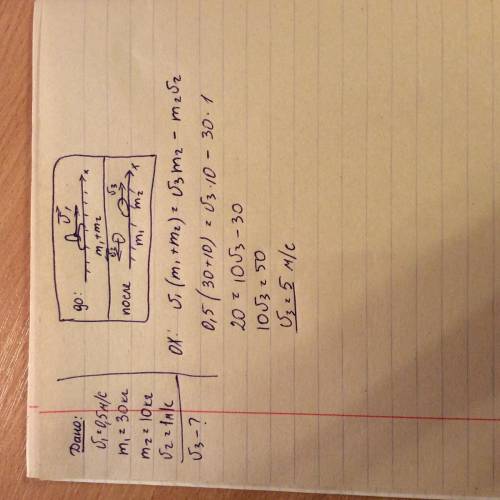 Дано:
v₁=0,5м/с
m₁=30кг
m₂=10кг
v₂=1м/с
v₃-?
до:
v₁
m₁+m₂
x
после
v₂
v₃
m₁
m₂
x
OX: v₁(m₁+m₂)=v₃m₂-m₂v₂
0,5(30+10)=v₃·10-30·1
20=10v₃-30
10v₃=50
v₃=5 м/с